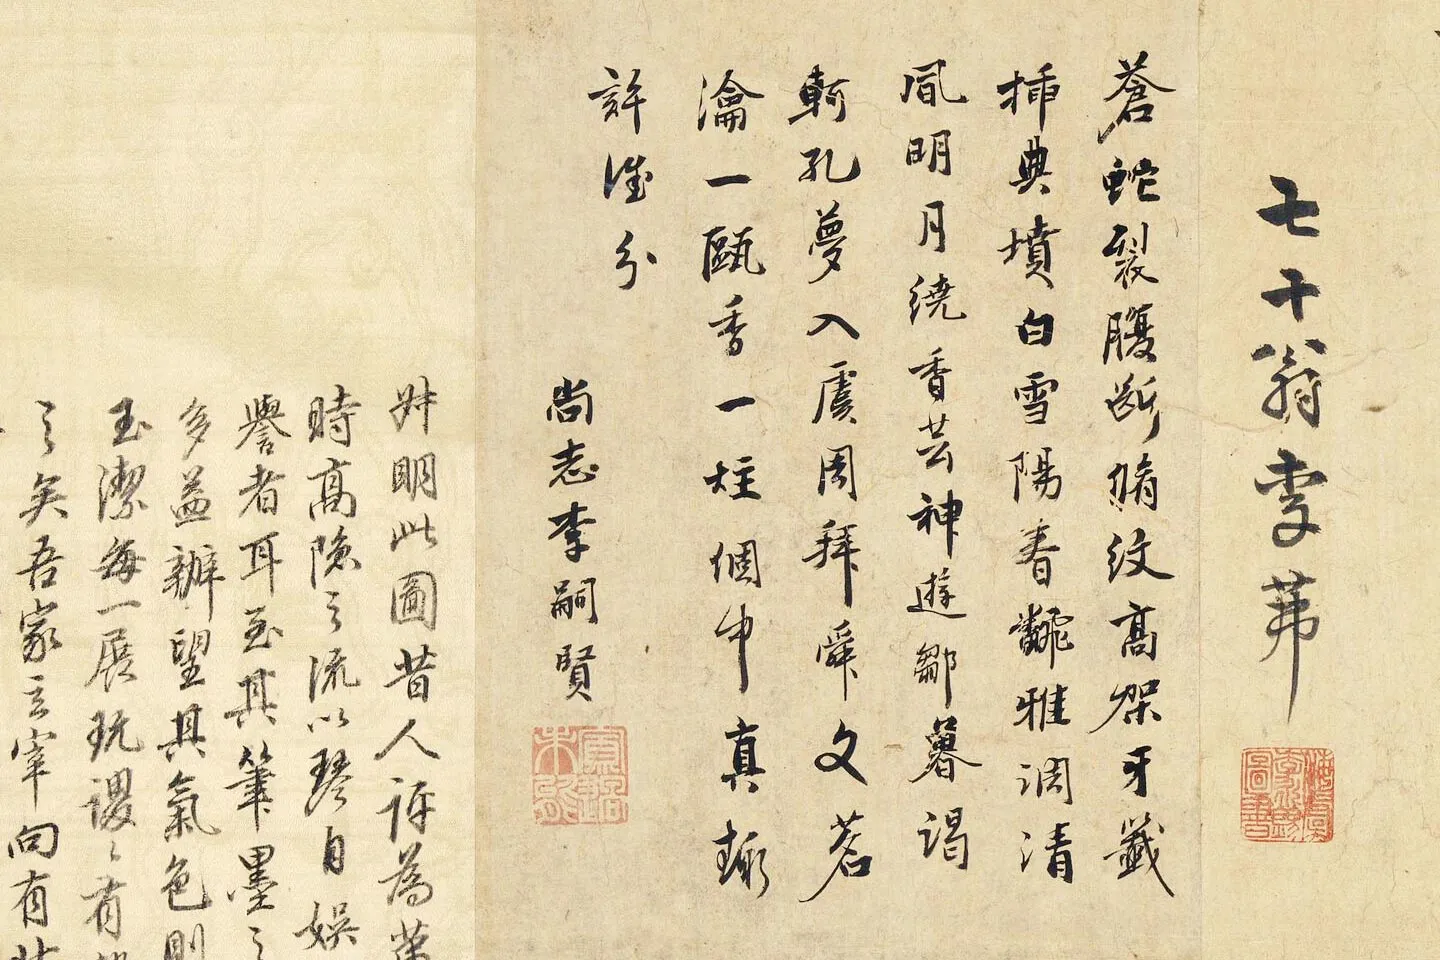 七十翁李茀
蒼蛇裂腹断脩紋高架牙籤
挿典墳白雪陽春翻雅調清
風明月繞香芸神遊鄒嶧謁
軻孔夢入虞周拜舜文茗
瀹一甌香一炷個中真趣
許誰分
尚志李嗣賢
舛明此圖昔人評為第
時高隐之流以琴自娱
譽者耳至其筆墨之
多益辦望其氣色則
玉潔每一展玩謖〻有
之矣吾家立宰向有